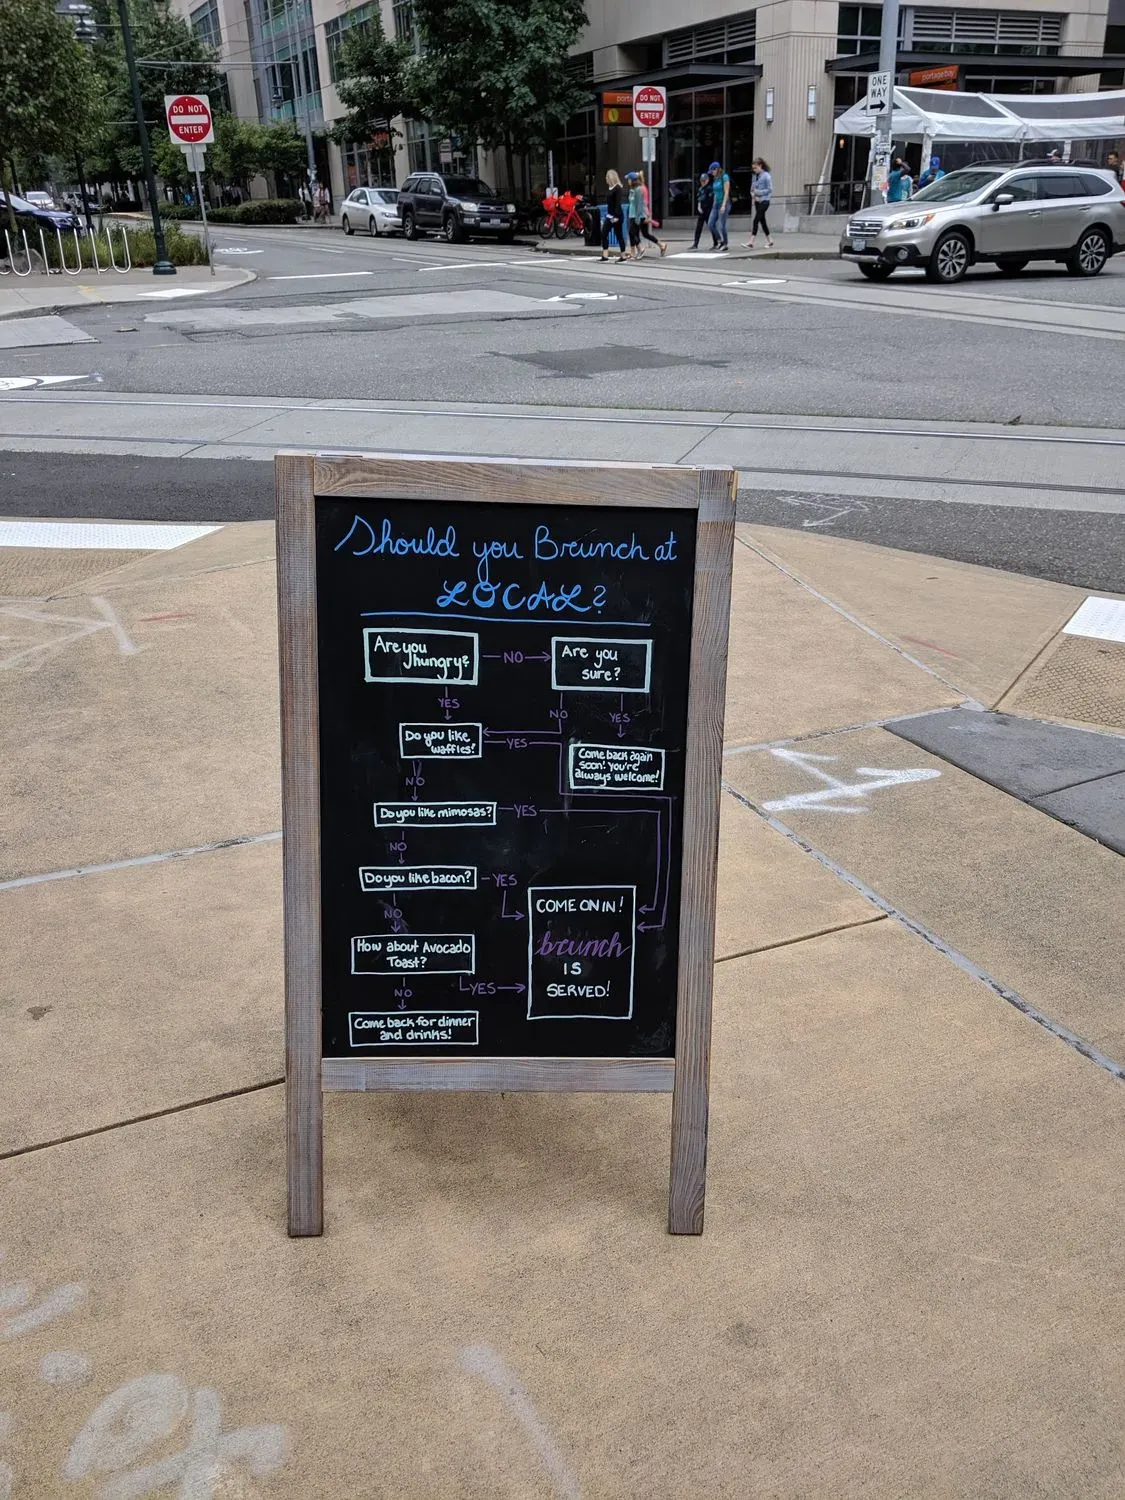 DO NOT
ENTER
DO NOT
ENTER
ONE
WAY
portage bay
Should you Brunch at
LOCAL?
Are you
hungry?
NO
Are you
sure?
YES
NO
YES
Do you like
waffles?
YES
Come back again
soon! You're
always welcome!
NO
Do you like mimosas?
YES
NO
Do you like bacon?
YES
NO
COME ON IN!
brunch
IS
SERVED!
How about Avocado
Toast?
YES
NO
Come back for dinner
and drinks!